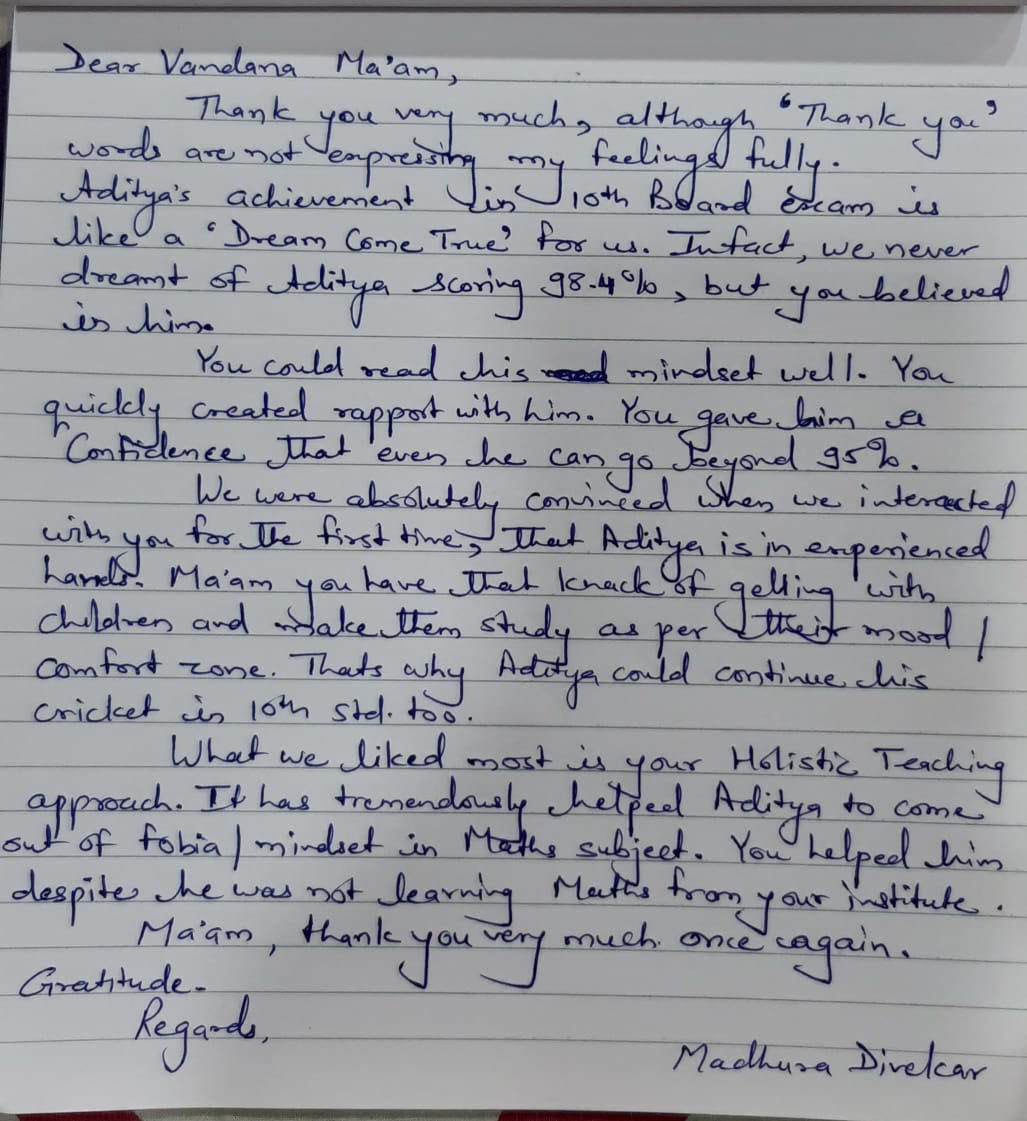 Dear Vandana Ma'am,
Thank you very much, although "Thank you"
words are not expressing my feelings fully.
Aditya's achievement in 10th Board exam is
like a 'Dream Come True' for us. Infact, we never
dreamt of Aditya scoring 98.4%, but you believed
in him.
You could read his mindset well. You
quickly created rapport with him. You gave him a
Confidence that even he can go beyond 95%.
We were absolutely convinced when we interacted
with you for the first time, that Aditya is in experienced
hands. Ma'am you have that knack of gelling with
children and make them study as per their mood /
comfort zone. Thats why Aditya could continue his
cricket in 10th std. too.
What we liked most is your Holistic Teaching
approach. It has tremendously helped Aditya to come
out of fobia / mindset in Maths subject. You helped him
despite he was not learning Maths from your institute.
Ma'am, thank you very much once again.
Gratitude.
Regards,
Madhura Divekar